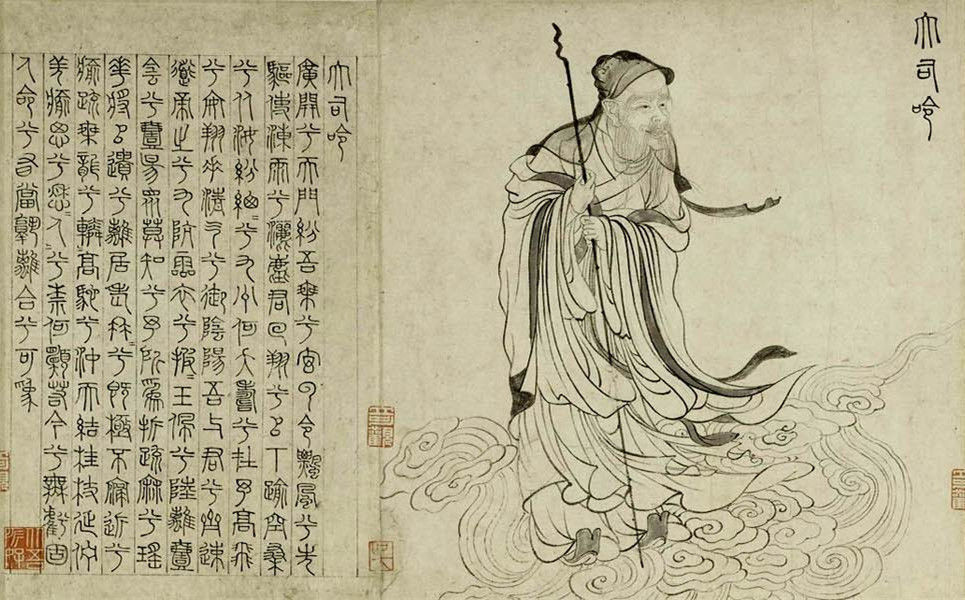 大司命
大司命
廣開兮天門紛吾乘兮玄雲令飄風兮先
驅使涷雨兮灑塵君回翔兮以下踰空桑
兮从女紛總〻兮九州何夭壽兮在予高飛
兮安翔乘清氣兮御陰陽吾與君兮齊速
導帝之兮九阬靈衣兮披〻玉佩兮陸離壹
陰兮壹昜眾莫知兮予所爲折疏麻兮瑤
華將以遺兮離居老冉〻兮既極不寖近兮
愈疏乘龍兮轔高馳兮沖天結桂枝延佇
羌愈思兮愁〻人〻兮柰何願若今兮無虧固
人命兮有當孰離合兮可爲